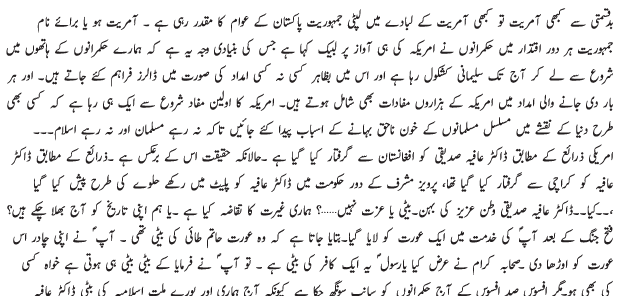 بدقسمتی سے کبھی آمریت تو کبھی آمریت کے لبادے میں لپٹی جمہوریت پاکستان کے عوام کا مقدر رہی ہے ۔ آمریت ہو یا برائے نام
جمہوریت ہر دور اقتدار میں حکمرانوں نے امریکہ کی ہی آواز پر لبیک کہا ہے جس کی بنیادی وجہ یہ ہے کہ ہمارے حکمرانوں کے ہاتھوں میں
شروع سے لے کر آج تک سلیمانی کشکول رہا ہے اور اس میں بظاہر کسی نہ کسی امداد کی صورت میں ڈالرز فراہم کئے جاتے ہیں۔ اور ہر
بار دی جانے والی امداد میں امریکہ کے ہزاروں مفادات بھی شامل ہوتے ہیں۔ امریکہ کا اولین مفاد شروع سے ایک ہی رہا ہے کہ کسی بھی
طرح دنیا کے نقشے میں مسلسل مسلمانوں کے خون ناحق بہانے کے اسباب پیدا کئے جائیں تاکہ نہ رہے مسلمان اور نہ رہے اسلام۔۔۔
امریکی ذرائع کے مطابق ڈاکٹر عافیہ صدیقی کو افغانستان سے گرفتار کیا گیا ہے ۔حالانکہ حقیقت اس کے برعکس ہے ۔ذرائع کے مطابق ڈاکٹر
عافیہ کو کراچی سے گرفتار کیا گیا تھا، پرویز مشرف کے دور حکومت میں ڈاکٹر عافیہ کو پلیٹ میں رکھے حلوے کی طرح پیش کیا گیا
،۔۔کیا۔۔ڈاکٹر عافیہ صدیقی وطن عزیز کی بہن۔بیٹی یا عزت نہیں......؟ ہماری غیرت کا تقاضہ کیا ہے ۔یا ہم اپنی تاریخ کو آج بھلا چکے ہیں؟
فتح جنگ کے بعد آپؐ کی خدمت میں ایک عورت کو لایا گیا۔بتایا جاتا ہے کہ وہ عورت حاتم طائی کی بیٹی تھی ۔ آپؐ نے اپنی چادر اس
عورت کو اوڑھا دی ۔صحابہ کرام نے عرض کیا یارسولؐ یہ ایک کافر کی بیٹی ہے ۔ تو آپؐ نے فرمایا کے بیٹی بیٹی ہی ہوتی ہے خواہ کسی
کی بھی ہو۔مگر افسوس صد افسوس کے آج حکمرانوں کو سانپ سونگھ چکا ہے کیونکہ آج ہماری اور پورے ملت اسلامیہ کی بیٹی ڈاکٹر عافیہ